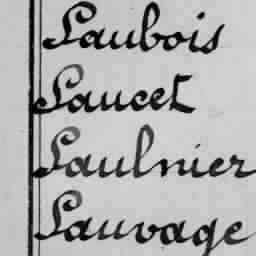 Saubois
Saucet
Saulnier
Sauvage